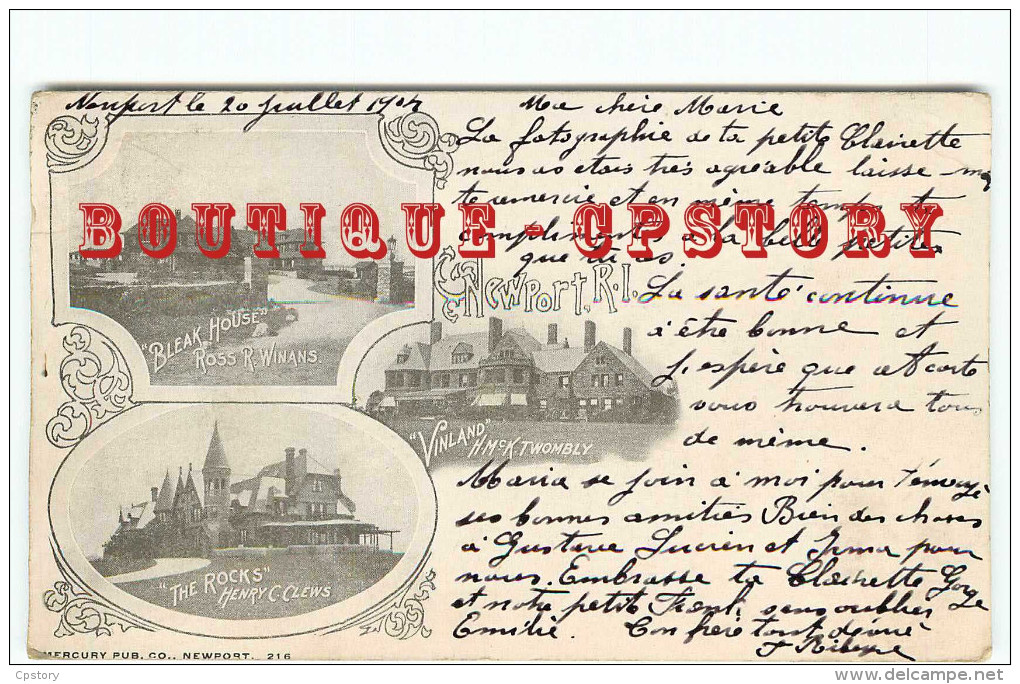 Newport le 20 Juillet 1904
Ma chère Marie
La fotographie de ta petite Clairette
nous as etais très agréable laisse-moi
te remercie et en même temps te
complimenté la belle petite
que tu as.
BOUTIQUE - CPSTORY
NEWPORT, R.I.
La santé continue
à être bonne et
j'espère que cet carte
vous trouvera tous
de même.
"BLEAK HOUSE"
ROSS R. WINANS.
"VINLAND"
H. McK. TWOMBLY
Maria se join à moi pour t'envoyé
ses bonnes amitiés Bien des choses
à Gustave Lucien et Irma pour
nous. Embrasse ta Clairette
et notre petite sans oublier
Emilie. Ton frère tout dévoué
"THE ROCKS"
HENRY C. CLEWS
MERCURY PUB. CO., NEWPORT. 216
Cpstory
www.delcampe.net